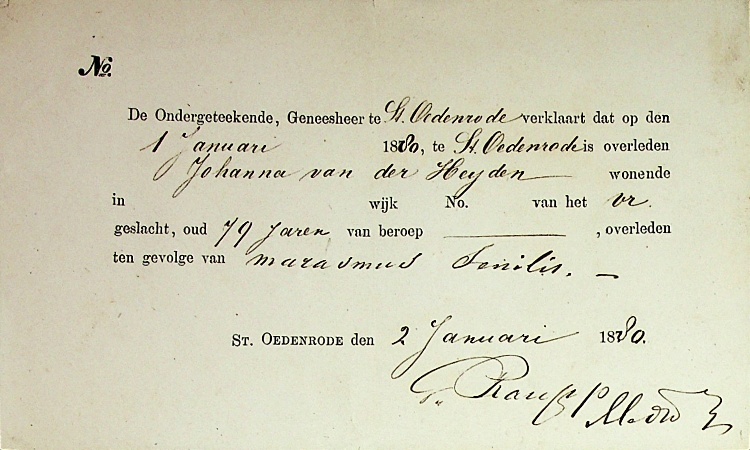 No.
De Ondergeteekende, Geneesheer te St. Oedenrode verklaart dat op den
1 Januari 1880, te St. Oedenrode is overleden
Johanna van der Heyden wonende
in wijk No. van het vr.
geslacht, oud 79 Jaren van beroep ———, overleden
ten gevolge van marasmus Senilis. —
ST. OEDENRODE den 2 Januari 1880.